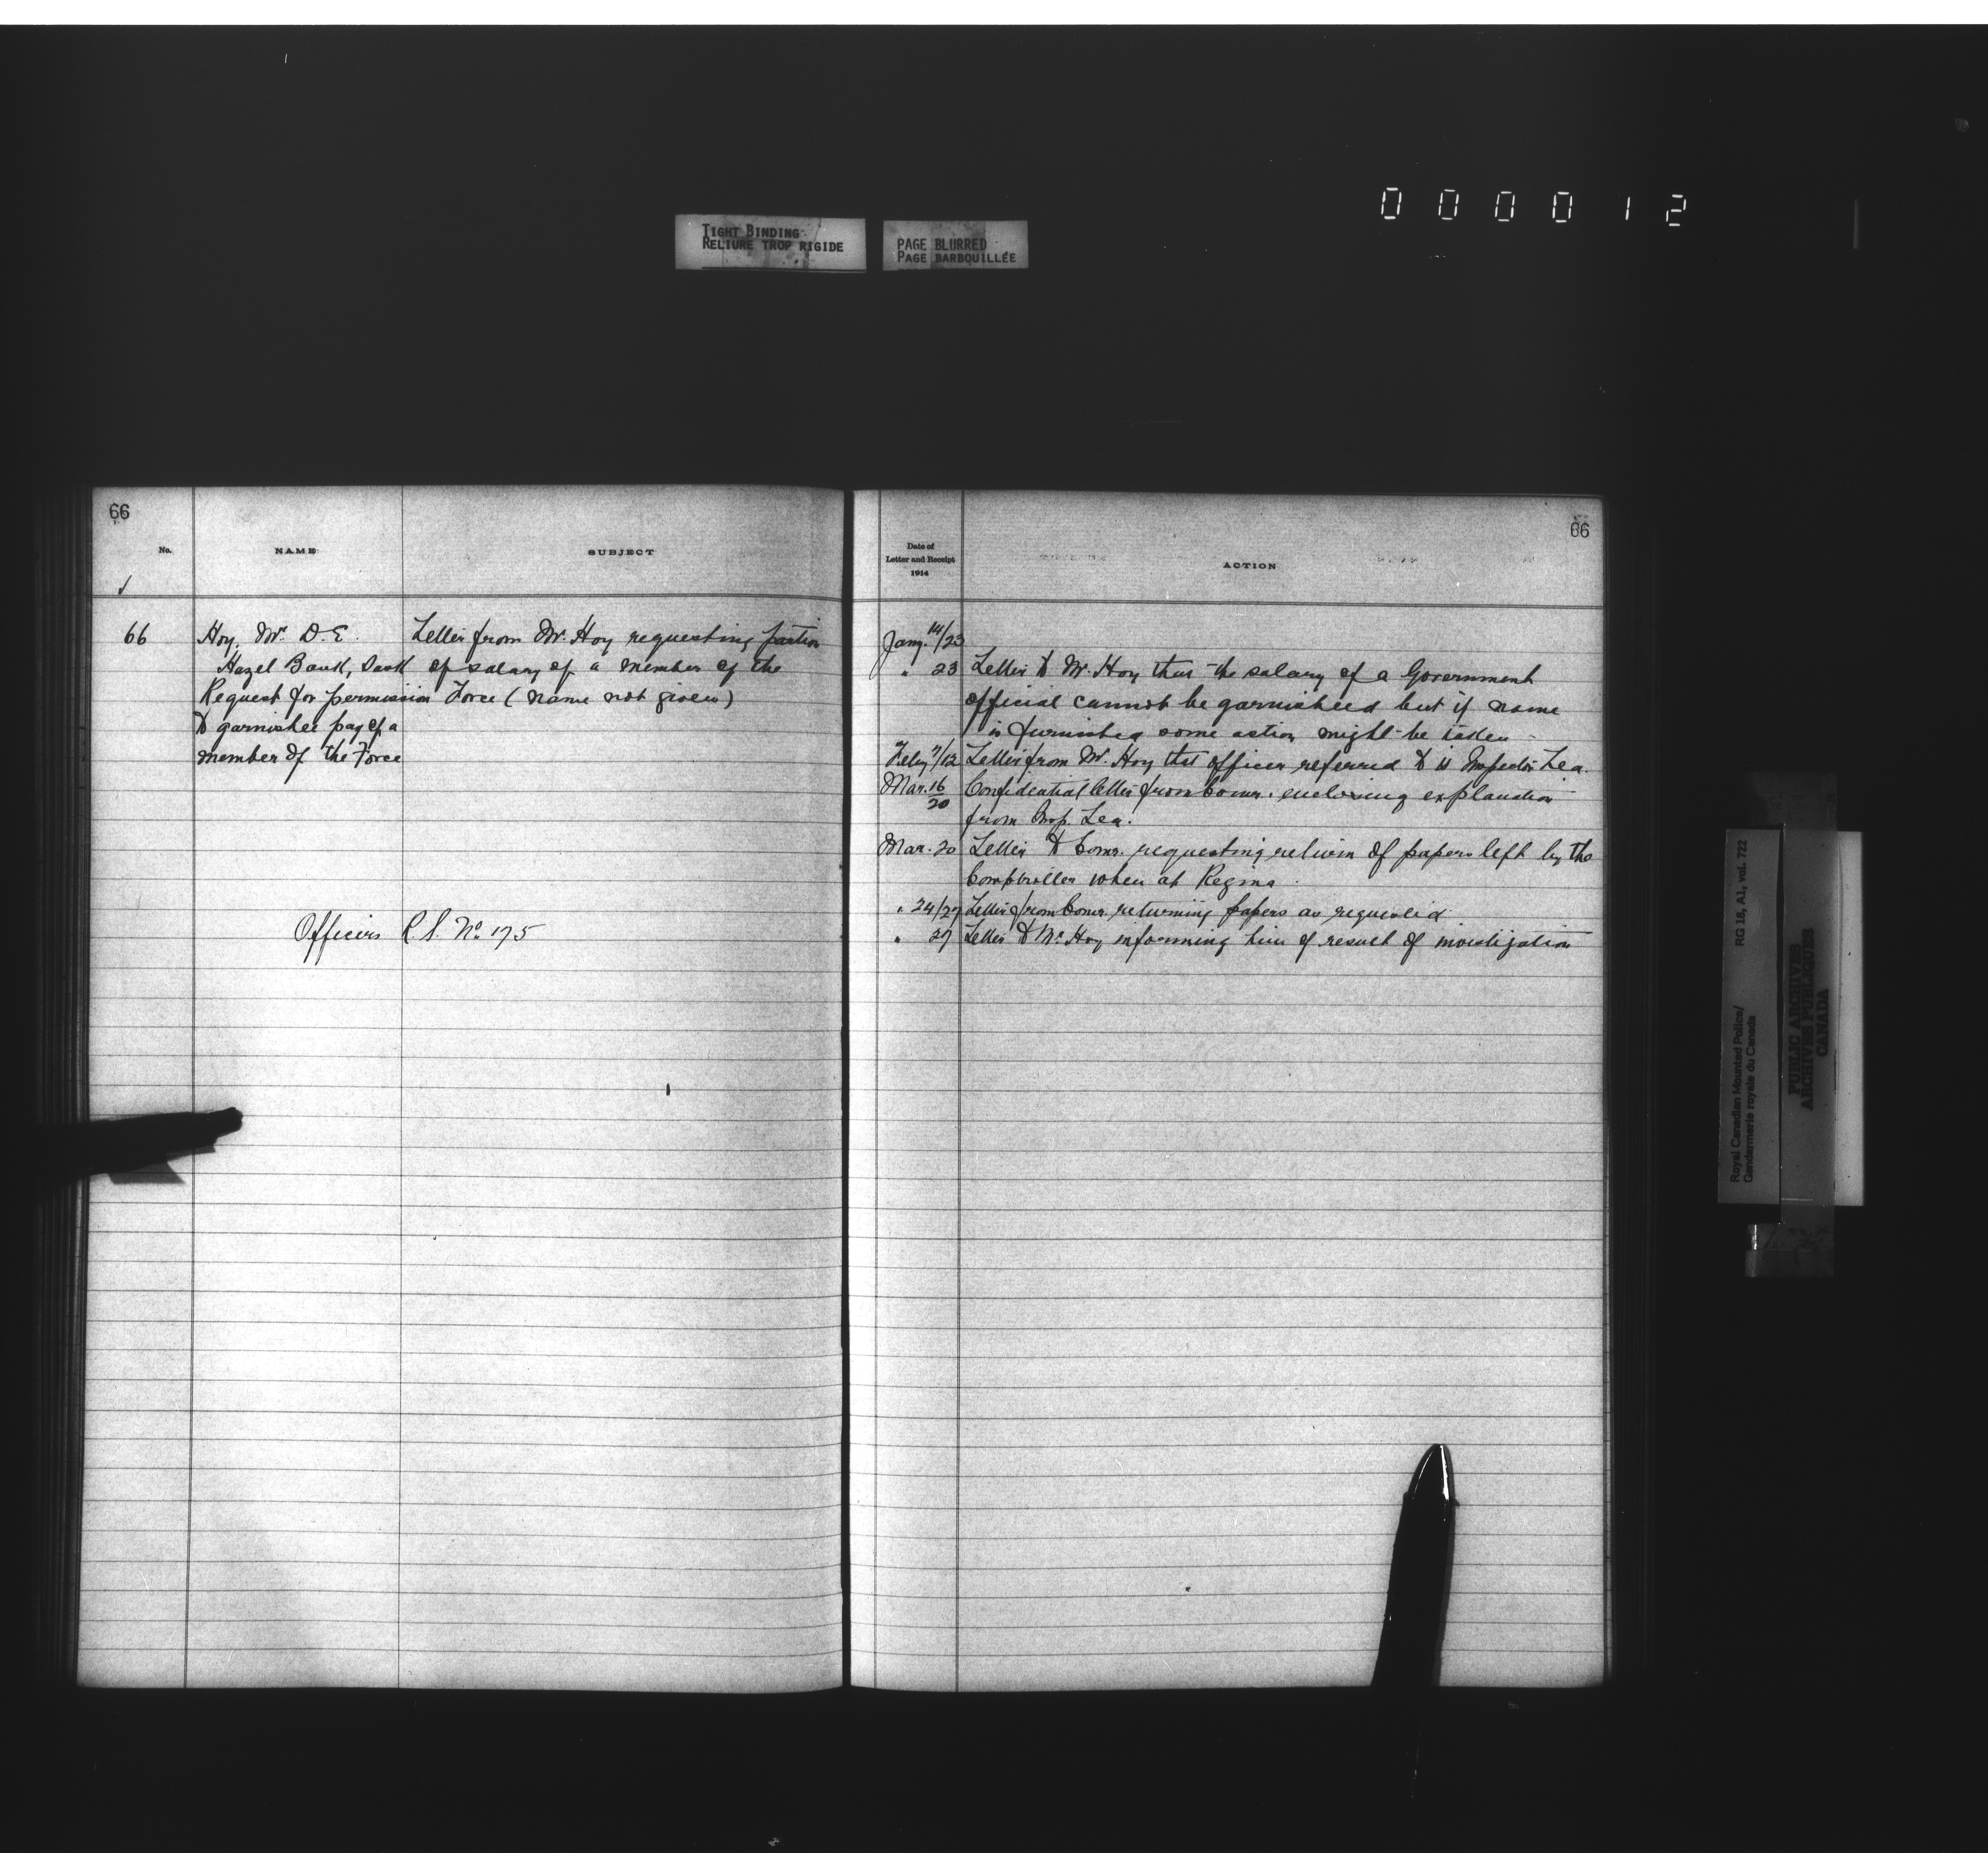 0 0 0 0 1 2
TIGHT BINDING
RELIURE TROP RIGIDE
PAGE BLURRED
PAGE BARBOUILLÉE
66
No.
NAME
SUBJECT
66 Hoy, Mr. D. E.
Hazel Bank, Sask
Request for permission
to garnishee pay of a
member of the Force
Letter from Mr. Hoy requesting portion
of salary of a member of the
Force (name not given)
Officers R.S. No. 175
66
Date of
Letter and Receipt
1914
ACTION
Jany. 14/23
" 23 Letter to Mr. Hoy that the salary of a Government
official cannot be garnisheed but if name
is furnished some action might be taken
Feby 7/12 Letter from Mr. Hoy that officer referred to is Inspector Lea.
Mar. 16/20 Confidential letter from Comr. enclosing explanation
from Insp. Lea.
Mar. 20 Letter to Comr. requesting return of papers left by the
Comptroller when at Regina.
" 24/27 Letter from Comr. returning papers as requested
" 27 Letter to Mr. Hoy informing him of result of investigation
Royal Canadian Mounted Police/
Gendarmerie royale du Canada
RG 18, A1, vol. 722
PUBLIC ARCHIVES
ARCHIVES PUBLIQUES
CANADA